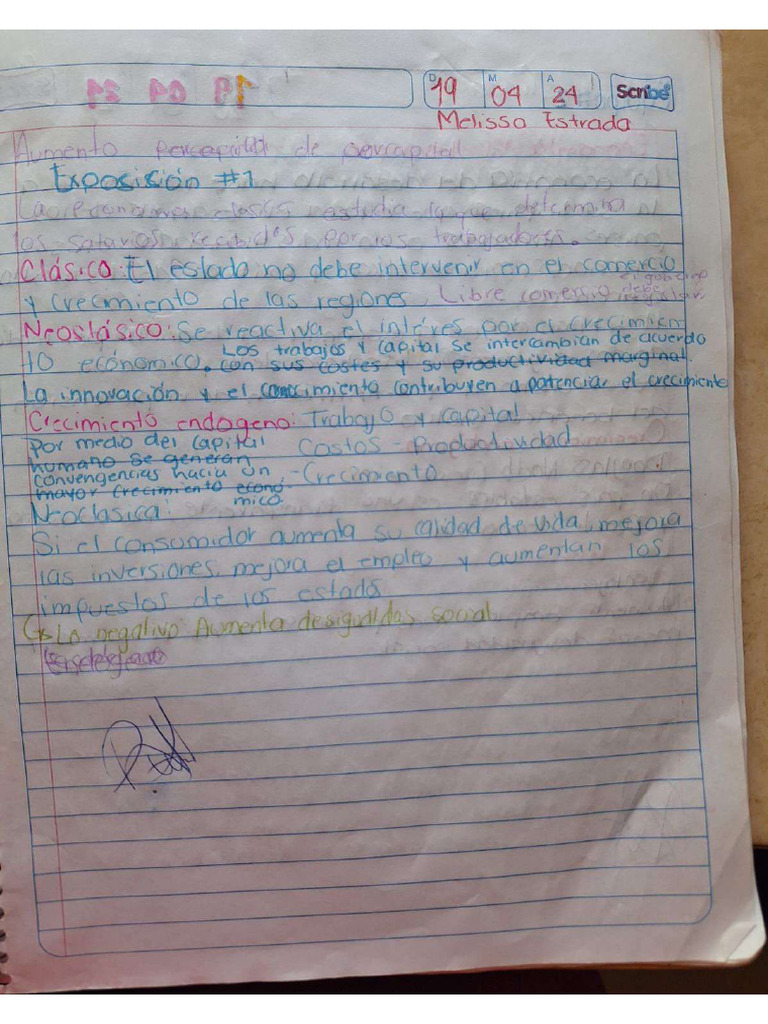 D 19 M 04 A 24 Scribe
Melissa Estrada
Aumento de percapital
Exposición #1
La economía estudia lo que determina
los salarios recibidos por los trabajadores.
Clásico: El estado no debe intervenir en el comercio
y crecimiento de las regiones. Libre comercio debe
Neoslásico: Se reactiva el intéres por el crecimien
to ecónomico. Los trabajos y capital se intercambian de acuerdo
con sus costes y su productividad marginal.
La innovación y el conocimiento contribuyen a potenciar el crecimiento
Crecimiento endogeno: Trabajo y capital
Por medio del capital Costos - Productividad
humano se generan
convengencias hacia un - Crecimiento
mayor crecimiento econo
mico.
Neoclasica:
Si el consumidor aumenta su calidad de vida, mejora
las inversiones, mejora el empleo y aumentan los
impuestos de los estado
Lo negativo: Aumenta social